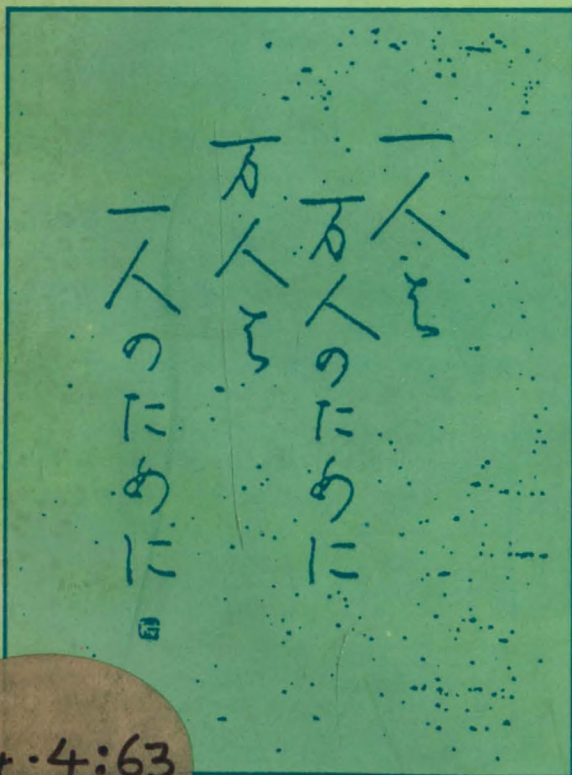 一人は
万人のために
万人は
一人のために
4:63